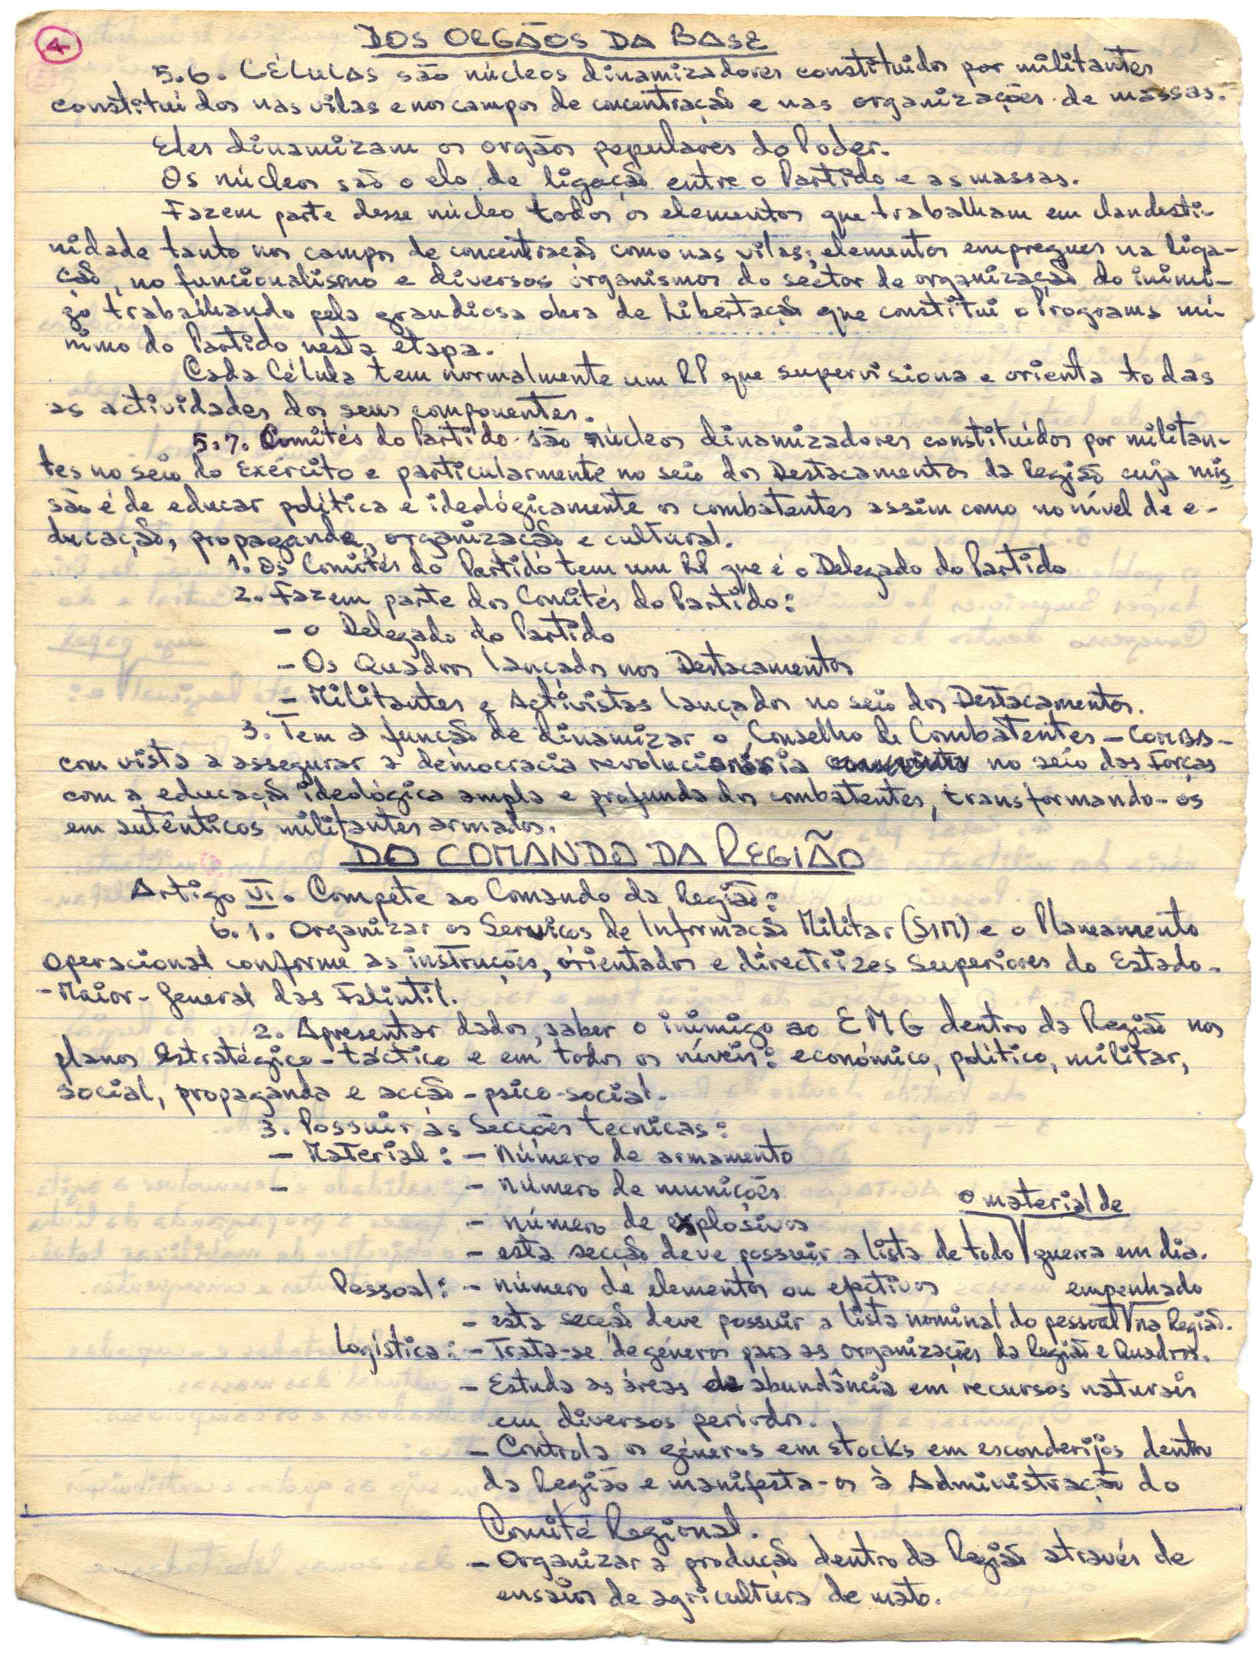 4
DOS ORGÃOS DA BASE
5.6. CÉLULAS são núcleos dinamizadores constituidos por militantes
constituídos nas vilas e nos campos de concentração e nas organizações de massas.
Eles dinamizam os orgãos populares do Poder.
Os núcleos são o elo de ligação entre o Partido e as massas.
Fazem parte desse núcleo todos os elementos que trabalham em clandesti-
nidade tanto nos campos de concentração como nas vilas; elementos empregues na liga-
ção, no funcionalismo e diversos organismos do sector de organização do inimi-
go trabalhando pela grandiosa obra de Libertação que constitui o Programa mí-
nimo do Partido nesta etapa.
Cada Célula tem normalmente um RP que supervisiona e orienta todas
as actividades dos seus componentes.
5.7. Comités do Partido são núcleos dinamizadores constituídos por militan-
tes no seio do Exército e particularmente no seio dos Destacamentos da Região cuja mis
são é de educar política e ideológicamente os combatentes assim como no nível de e-
ducação, propaganda, organização e cultural.
1. Os Comités do Partido tem um RP que é o Delegado do Partido
2. Fazem parte dos Comités do Partido:
- O Delegado do Partido
- Os Quadros lançados nos Destacamentos
- Militantes e Activistas lançados no seio dos Destacamentos.
3. Tem a função de dinamizar o Conselho de Combatentes -
com vista a assegurar a democracia revolucionária no seio das Forças
com a educação ideológica ampla e profunda dos combatentes, transformando-os
em autênticos militantes armados.
DO COMANDO DA REGIÃO
Artigo VI. Compete ao Comando da Região:
6.1. Organizar os Serviços de Informação Militar (SIM) e o Planeamento
Operacional conforme as instruções, orientados e directrizes Superiores do Estado-
-Maior-General das Falintil.
2. Apresentar dados, saber o inimigo ao EMG dentro da Região nos
planos Estratégico-táctico e em todos os níveis: económico, político, militar,
social, propaganda e acção-psico-social.
3. Possuir as Secções técnicas:
- Material: - Número de armamento
- - Número de munições
- Número de explosivos
o material de
- esta secção deve possuir a lista de todo guerra em dia.
Pessoal: - Número de elementos ou efectivos
empenhado
- esta secção deve possuir a lista nominal do pessoal na Região.
Logística: - Trata-se de géneros para as organizações da Região e Quadros.
- Estuda as áreas de abundância em recursos naturais
em diversos períodos.
- Controla os géneros em stocks em esconderijos dentro
da Região e manifesta-os à Administração do
Comité Regional.
- Organizar a produção dentro da Região através de
ensaios de agricultura de mato.